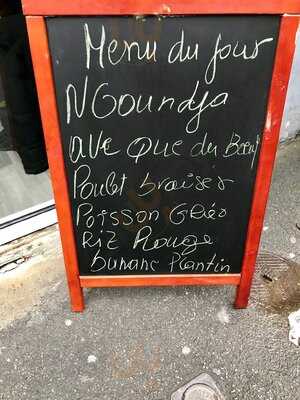 Menu du jour
NGoundja
avec que du Boeuf
Poulet braiser
Poisson Gbéo
Riz Rouge
banane Plantin